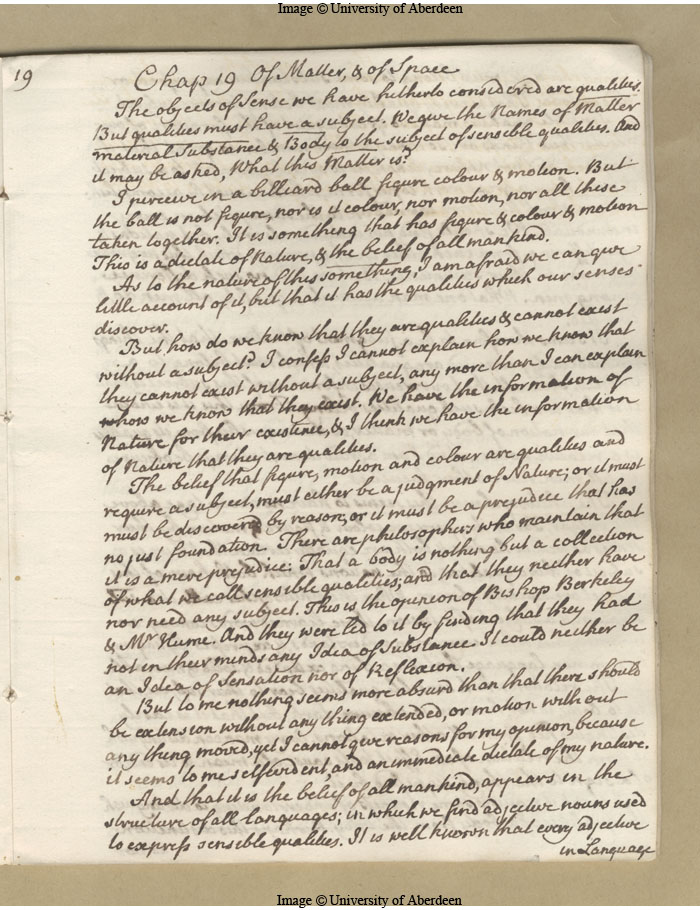 Image © University of Aberdeen
19
Chap 19 Of Matter, & of Space
The objects of Sense we have hitherto considered are qualities.
But qualities must have a subject. We give the Names of Matter
material Substance & Body to the subject of sensible qualities. And
it may be asked, What this Matter is?
I perceive in a billiard ball figure colour & motion. But
the ball is not figure, nor is it colour, nor motion, nor all these
taken together. It is something that has figure & colour & motion
This is a dictate of Nature, & the belief of all mankind.
As to the nature of this something, I am afraid we can give
little account of it, but that it has the qualities which our senses
discover.
But how do we know that they are qualities & cannot exist
without a subject? I confess I cannot explain how we know that
they cannot exist without a subject, any more than I can explain
how we know that they exist. We have the information of
Nature for their existence, & I think we have the information
of Nature that they are qualities.
The belief that figure, motion and colour are qualities and
require a subject, must either be a judgment of Nature; or it must
must be discovered by reason, or it must be a prejudice that has
no just foundation. There are philosophers who maintain that
it is a mere prejudice: That a body is nothing but a collection
of what we call sensible qualities; and that they neither have
nor need any subject. This is the opinion of Bishop Berkeley
& Mr Hume. And they were led to it by finding that they had
not in their minds any Idea of Substance It could neither be
an Idea of Sensation nor of Reflexion.
But to me nothing seems more absurd than that there should
be extension without any thing extended, or motion without
any thing moved, yet I cannot give reasons for my opinion, because
it seems to me selfevident, and an immediate dictate of my nature.
And that it is the belief of all mankind, appears in the
structure of all languages; in which we find adjective nouns used
to express sensible qualities. It is well known that every adjective
in Language
Image © University of Aberdeen